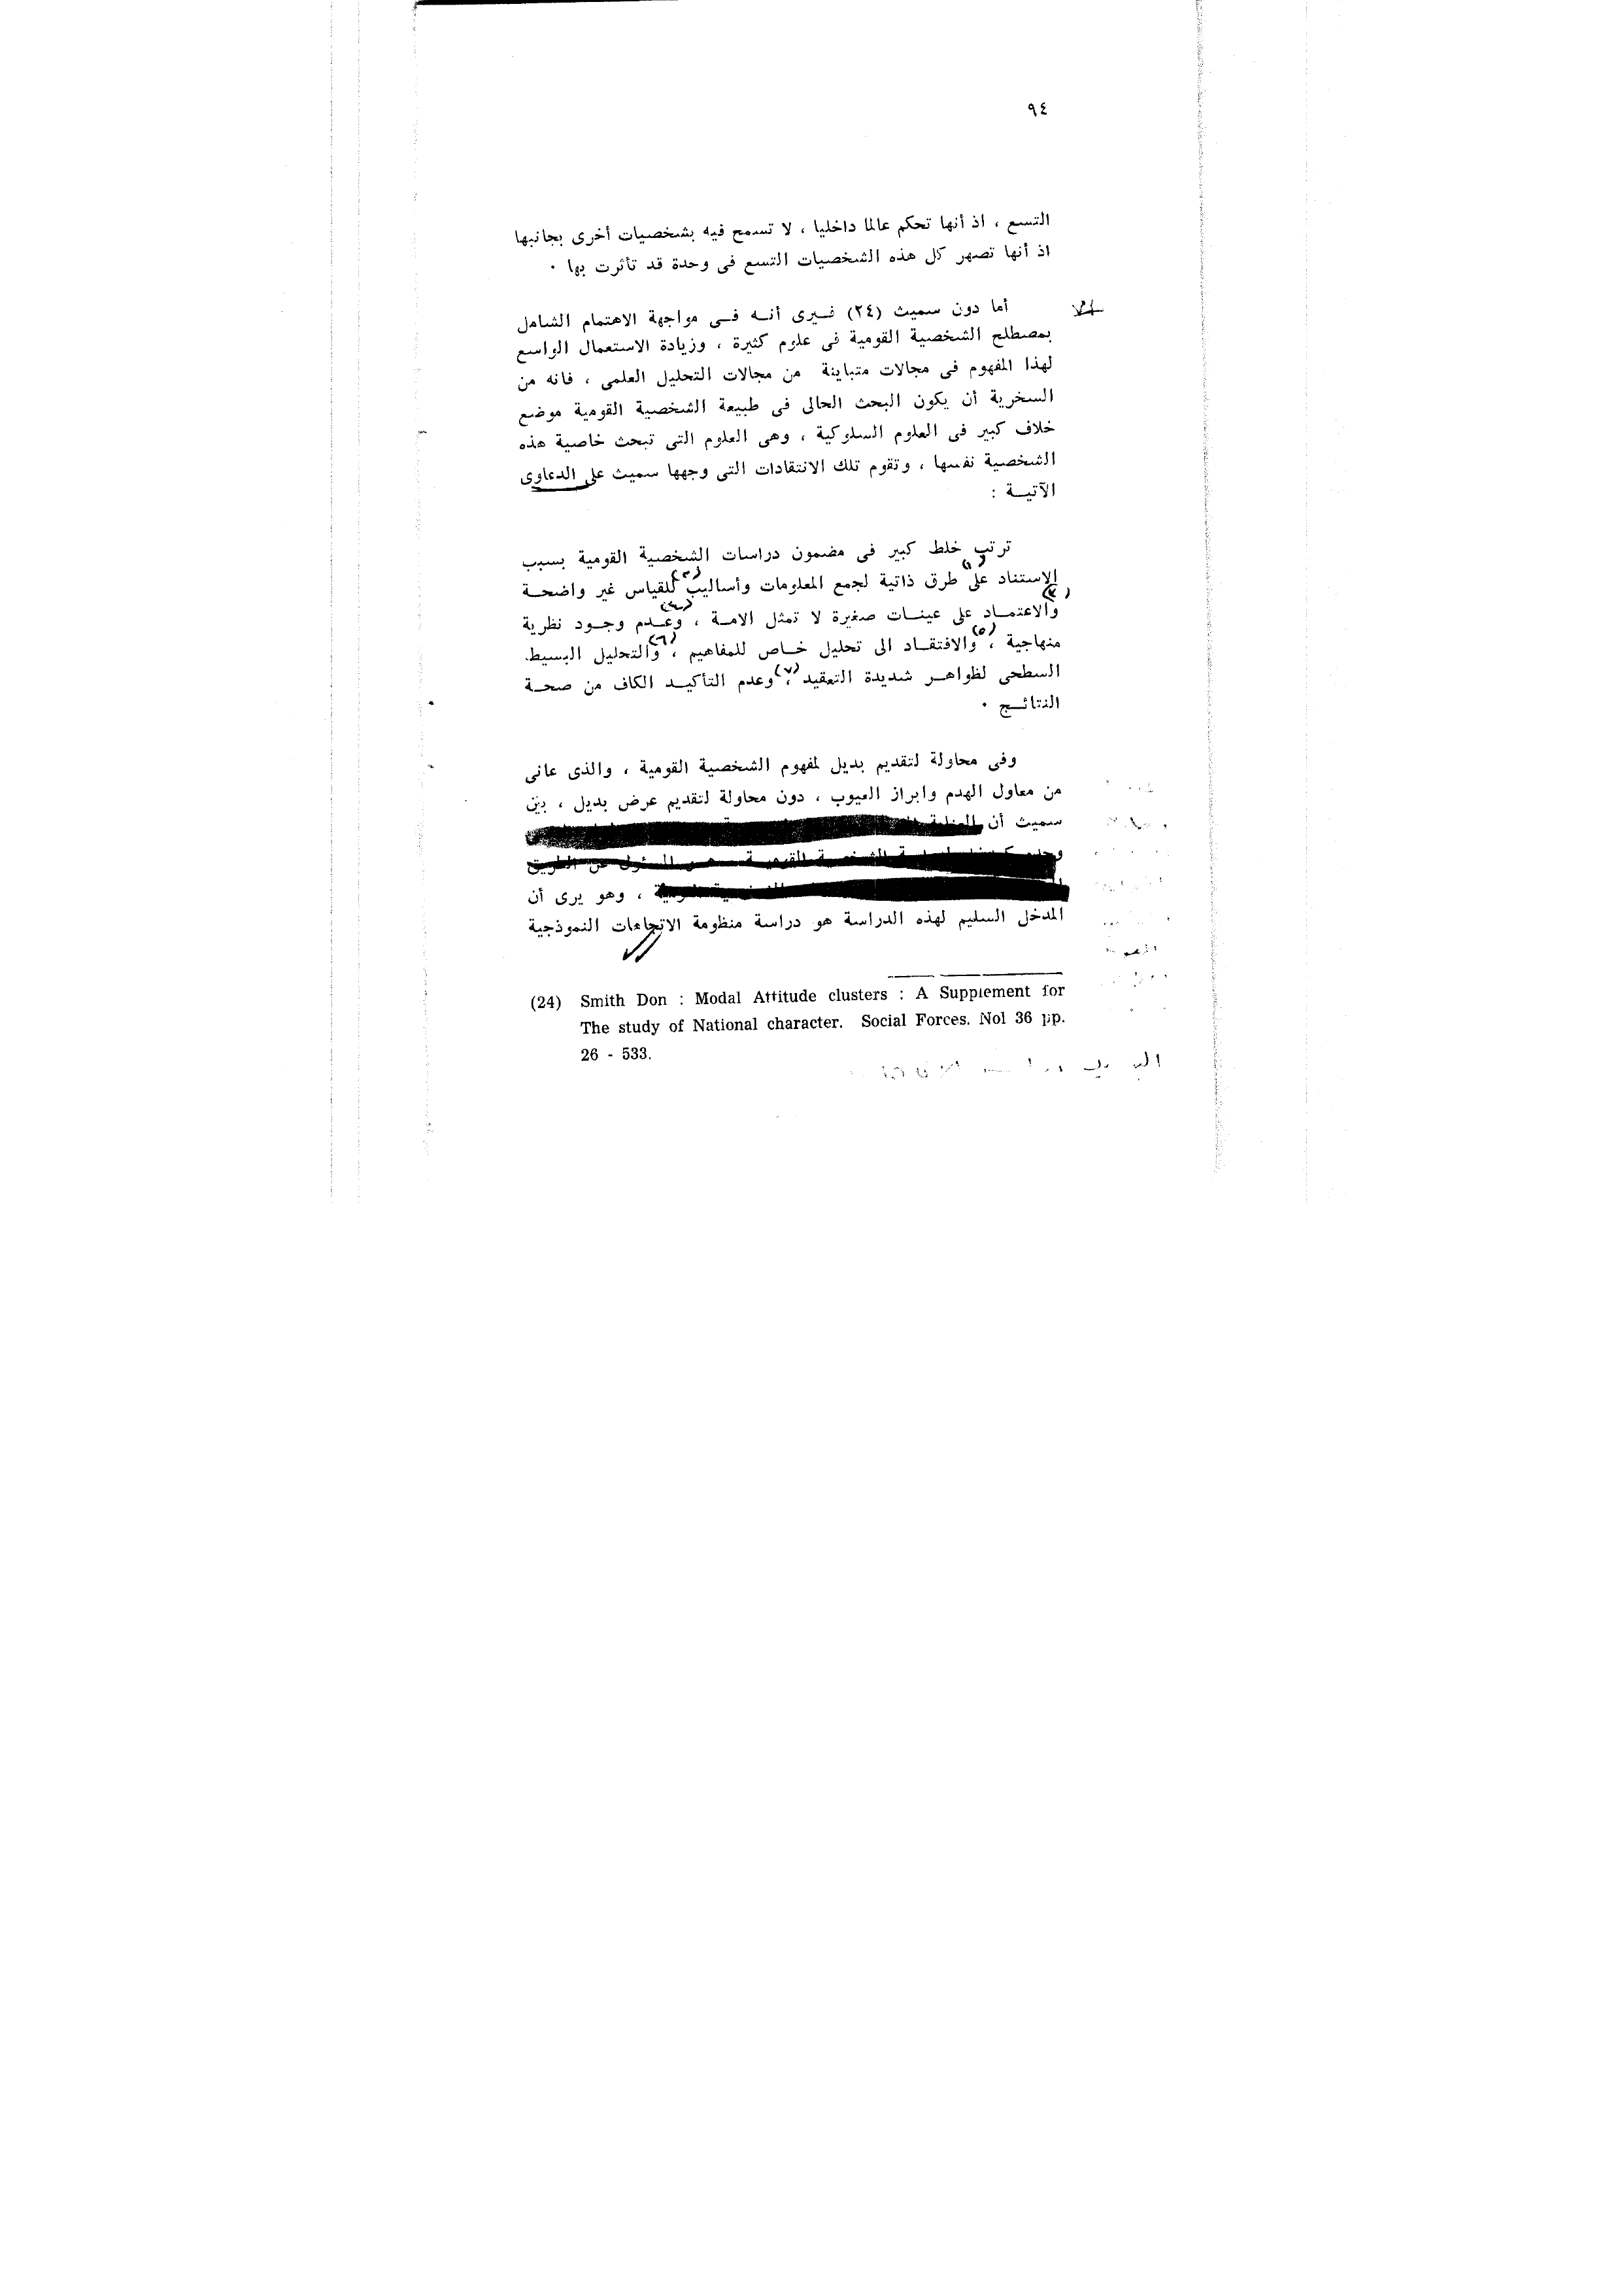 ٩٤
التسع ، اذ أنها تحكم عالما داخليا ، لا تسمح فيه بشخصيات أخرى بجانبها
اذ أنها تصهر كل هذه الشخصيات التسع فى وحدة قد تأثرت بها ٠
أما دون سميث (٢٤) فـيرى أنـه فـى مواجهة الاهتمام الشامل
بمصطلح الشخصية القومية فى علوم كثيرة ، وزيادة الاستعمال الواسع
لهذا المفهوم فى مجالات متباينة من مجالات التحليل العلمى ، فانه من
السخرية أن يكون البحث الحالى فى طبيعة الشخصية القومية موضع
خلاف كبير فى العلوم السلوكية ، وهى العلوم التى تبحث خاصية هذه
الشخصية نفسها ، وتقوم تلك الانتقادات التى وجهها سميث على الدعاوى
الآتيـة :
ترتب خلط كبير فى مضمون دراسات الشخصية القومية بسبب
الاستناد على (١) طرق ذاتية لجمع المعلومات وأساليب (٢) للقياس غير واضحـة
(٣) والاعتمـاد على عينـات صغيرة لا تمثل الامـة ، (٤) وعـدم وجـود نظرية
منهاجية ، (٥) والافتقـاد الى تحليل خـاص للمفاهيم ، (٦) والتحليل البسيط
السطحى لظواهـر شديدة التعقيد ، (٧) وعدم التأكيـد الكاف من صحـة
النتائـج ٠
وفى محاولة لتقديم بديل لمفهوم الشخصية القومية ، والذى عانى
من معاول الهدم وابراز العيوب ، دون محاولة لتقديم عرض بديل ، بين
سميث أن
، وهو يرى أن
المدخل السليم لهذه الدراسة هو دراسة منظومة الاتجاهات النموذجية
(24) Smith Don : Modal Attitude clusters : A Supplement for
The study of National character. Social Forces. Nol 36 pp.
26 - 533.